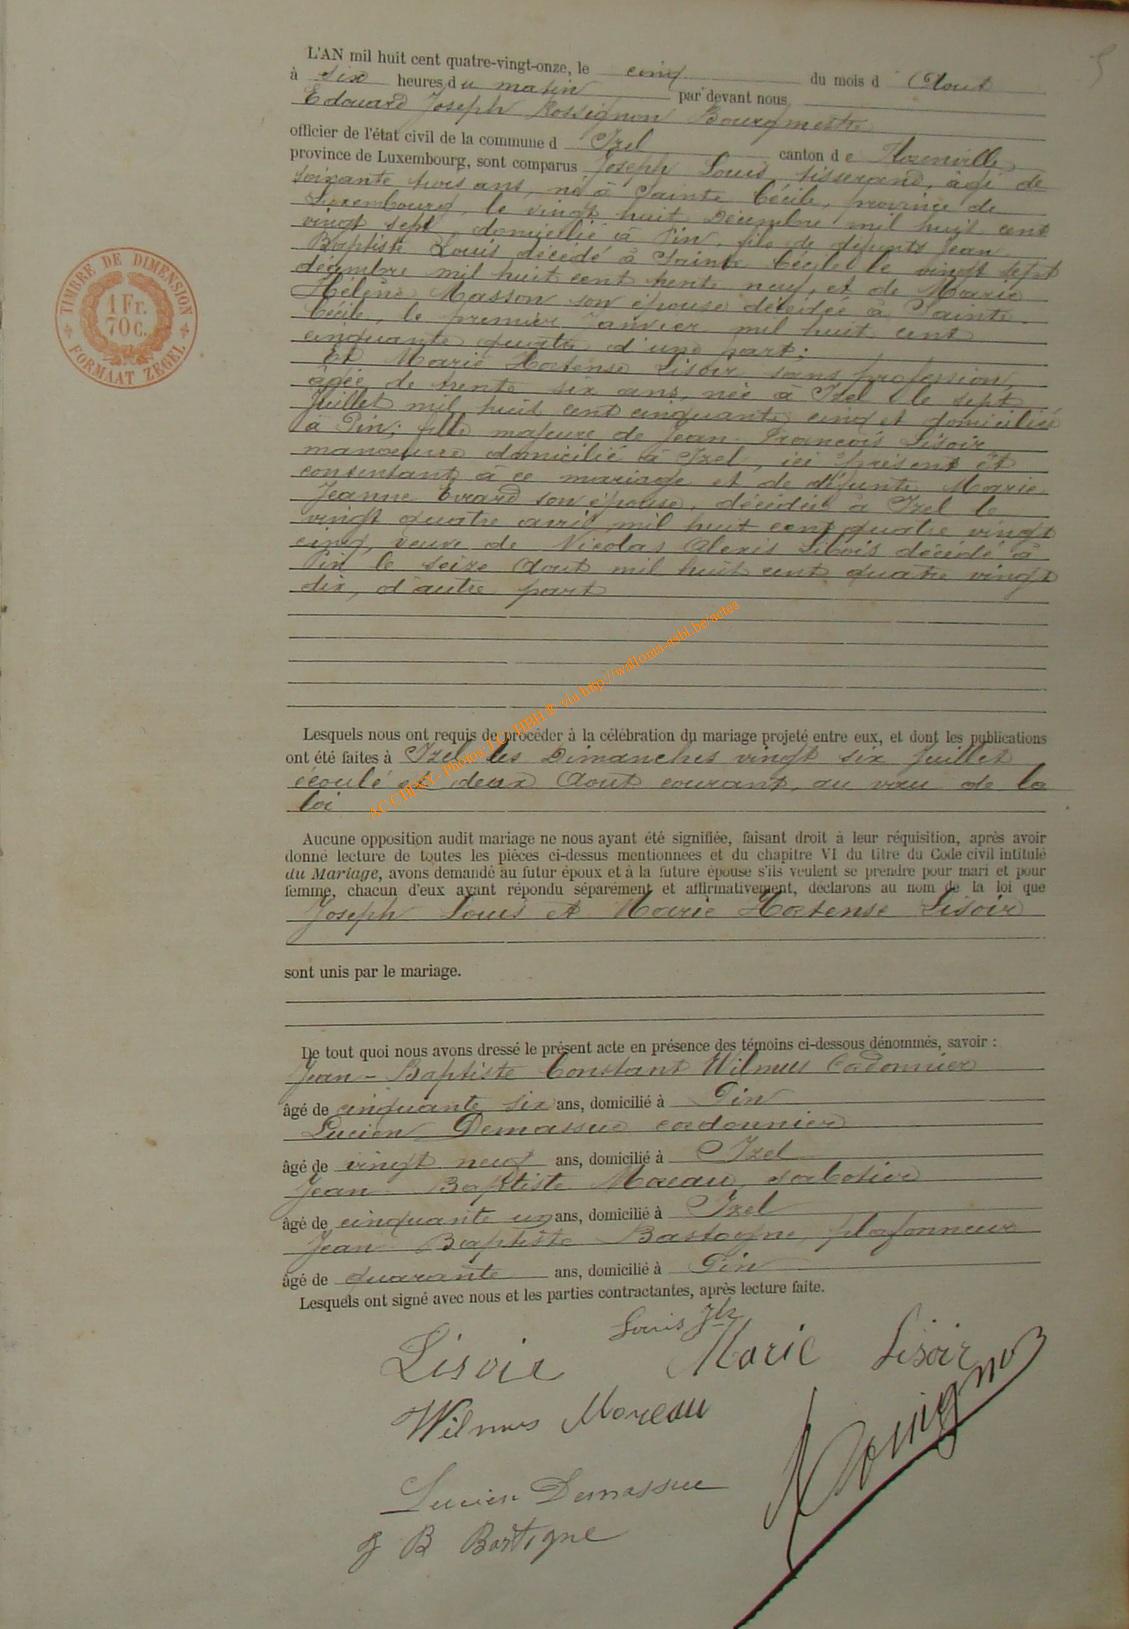 L'AN mil huit cent quatre-vingt-onze, le cinq du mois d'Aout
à six heures du matin par devant nous
Edouard Joseph Rossignon Bourgmestre
officier de l'état civil de la commune d Izel canton de Florenville
province de Luxembourg, sont comparus Joseph Louis, tisserand, âgé de
soixante trois ans, né à Sainte Cécile, province de
Luxembourg, le vingt huit Décembre mil huit cent
vingt sept, domicilié à Pin, fils de défunts Jean
Baptiste Louis, décédé à Sainte Cécile, le vingt sept
décembre mil huit cent trente neuf, et de Marie
Hélène Masson son épouse décédée à Sainte
Cécile, le premier Janvier mil huit cent
cinquante quatre d'une part;
Et Marie Hortense Lisoir sans profession,
âgée de trente six ans, née à Izel le sept
Juillet mil huit cent cinquante cinq et domiciliée
à Pin; fille majeure de Jean François Lisoir
manoeuvre domicilié à Izel, ici présent et
consentant à ce mariage et de défunte Marie
Jeanne Evrard son épouse, décédée à Izel le
vingt quatre avril mil huit cent quatre vingt
cinq, veuve de Nicolas Alexis Libois décédé à
Pin le seize Aout mil huit cent quatre vingt
dix, d'autre part
Lesquels nous ont requis de procéder à la célébration du mariage projeté entre eux, et dont les publications
ont été faites à Izel les Dimanches vingt six Juillet
écoulé et deux Aout courant, au voeu de la
loi
Aucune opposition audit mariage ne nous ayant été signifiée, faisant droit à leur réquisition, après avoir
donné lecture de toutes les pièces ci-dessus mentionnées et du chapitre VI du titre du Code civil intitulé
du Mariage, avons demandé au futur époux et à la future épouse s'ils veulent se prendre pour mari et pour
femme, chacun d'eux ayant répondu séparément et affirmativement, déclarons au nom de la loi que
Joseph Louis et Marie Hortense Lisoir
sont unis par le mariage.
De tout quoi nous avons dressé le présent acte en présence des témoins ci-dessous dénommés, savoir :
Jean-Baptiste Constant Wilmus Cordonnier
âgé de cinquante six ans, domicilié à Pin
Lucien Demassue cordonnier
âgé de vingt neuf ans, domicilié à Izel
Jean Baptiste Moreau, sabotier
âgé de cinquante un ans, domicilié à Izel
Jean Baptiste Bastogne, plafonneur
âgé de quarante ans, domicilié à Pin
Lesquels ont signé avec nous et les parties contractantes, après lecture faite.
Louis Jh
Lisoir Marie Lisoir
Wilmus Moreau
Rossignon
Lucien Demassue
J B Bastogne
TIMBRE DE DIMENSION
1 Fr.
70 C.
FORMAAT ZEGEL
via http://wallonia-asbl.be/actes